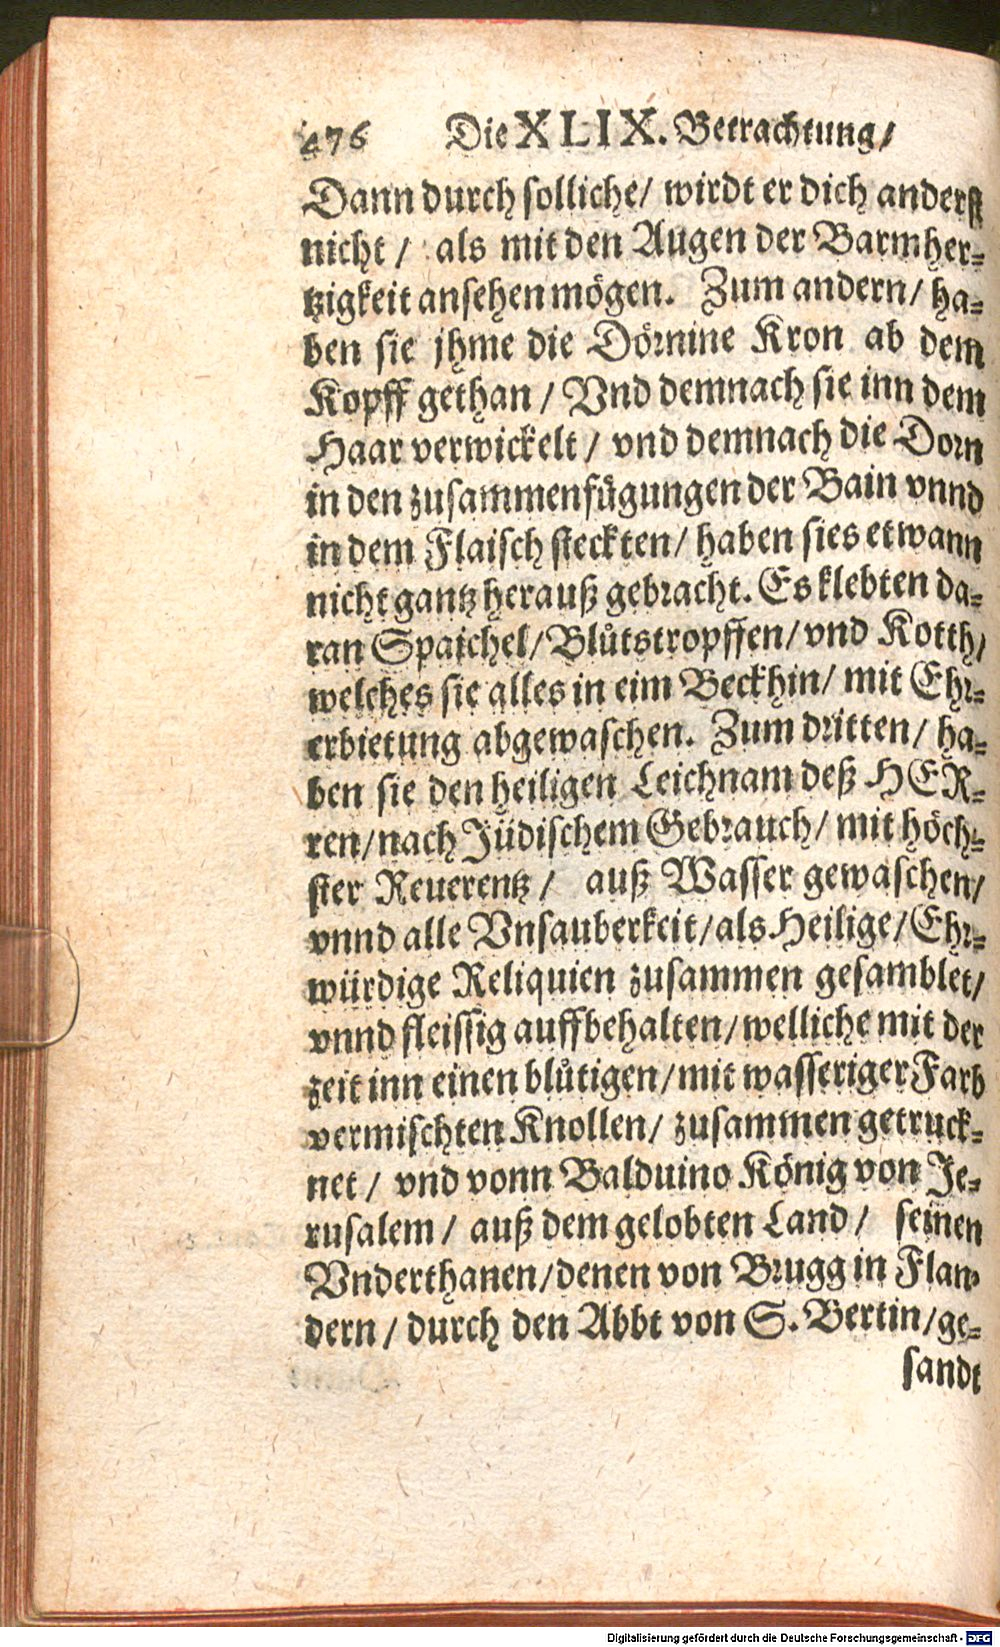 476 Die XLIX. Betrachtung/
Dann durch solliche/ wirdt er dich anderst
nicht / als mit den Augen der Barmher-
tzigkeit ansehen mögen. Zum andern/ ha-
ben sie jhme die Dörnine Kron ab dem
Kopff gethan / Vnd demnach sie inn dem
Haar verwickelt / vnd demnach die Dorn
in den zusammenfügungen der Bain vnnd
in dem Flaisch steckten/ haben sies etwann
nicht gantz herauß gebracht. Es klebten da-
ran Spaichel/ Blůtstropffen/ vnd Kotth/
welches sie alles in eim Beckhin/ mit Ehr-
erbietung abgewaschen. Zum dritten/ ha-
ben sie den heiligen Leichnam deß HER-
ren/ nach Jüdischem Gebrauch/ mit höch-
ster Reuerentz / auß Wasser gewaschen/
vnnd alle Vnsauberkeit/ als Heilige/ Ehr-
würdige Reliquien zusammen gesamblet/
vnnd fleissig auffbehalten/ welliche mit der
zeit inn einen blůtigen/ mit wasseriger Farb
vermischten Knollen/ zusammen getruck-
net / vnd vonn Balduino König von Je-
rusalem / auß dem gelobten Land / seinen
Vnderthanen/ denen von Brugg in Flan-
dern / durch den Abbt von S. Bertin/ ge-
sandt
Digitalisierung gefördert durch die Deutsche Forschungsgemeinschaft - DFG